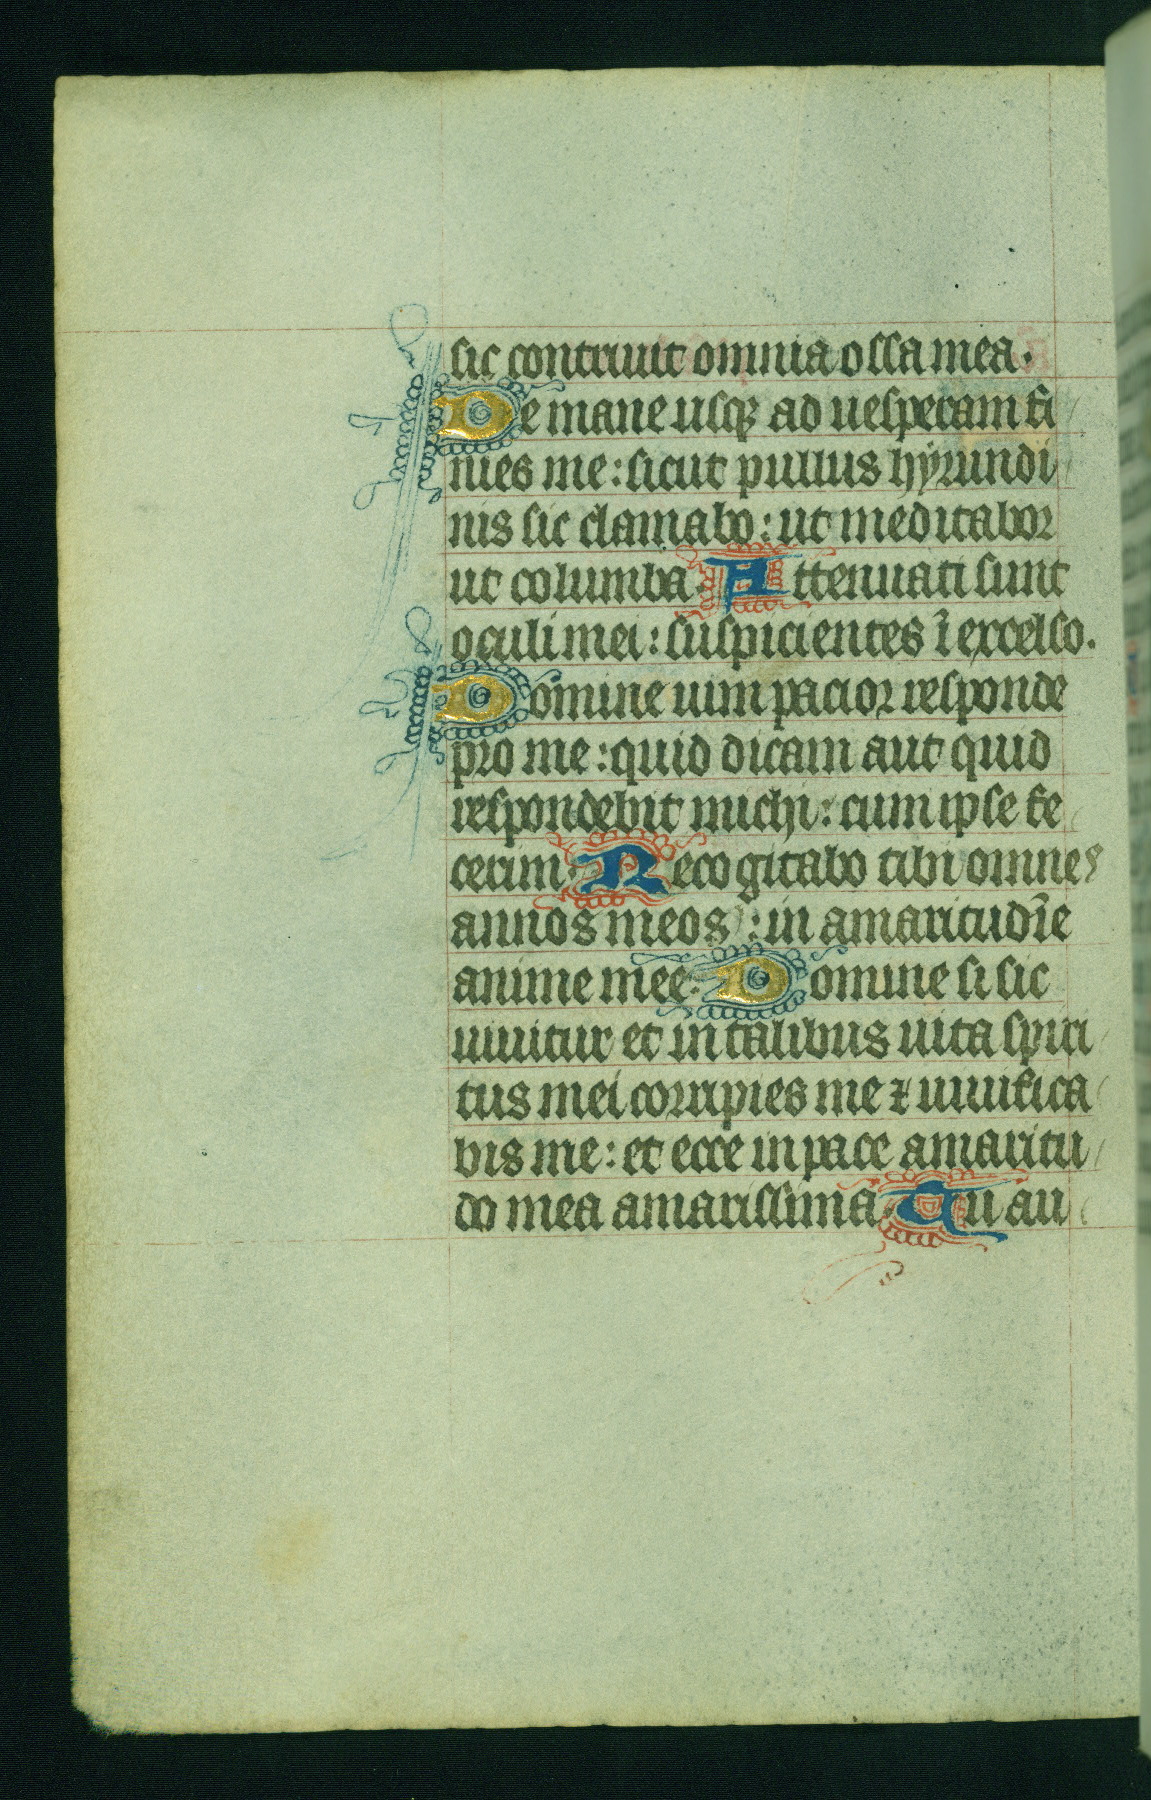 sic contriuit omnia ossa mea.
De mane usqꝫ ad uesperam fi
nies me: sicut pullus hyrundi
nis sic clamabo: ut meditabor
ut columba. Attenuati sunt
oculi mei: suspicientes ī excelso.
Domine uim pacior responde
pro me: quid dicam aut quid
respondebit michi: cum ipse fe
cerim. Recogitabo tibi omnes
annos meos: in amaritudīe
anime mee. Domine si sic
uiuitur et in talibus uita spiri
tus mei corripies me ⁊ uiuifica
bis me: et ecce in pace amaritu
do mea amarissima. Tu au